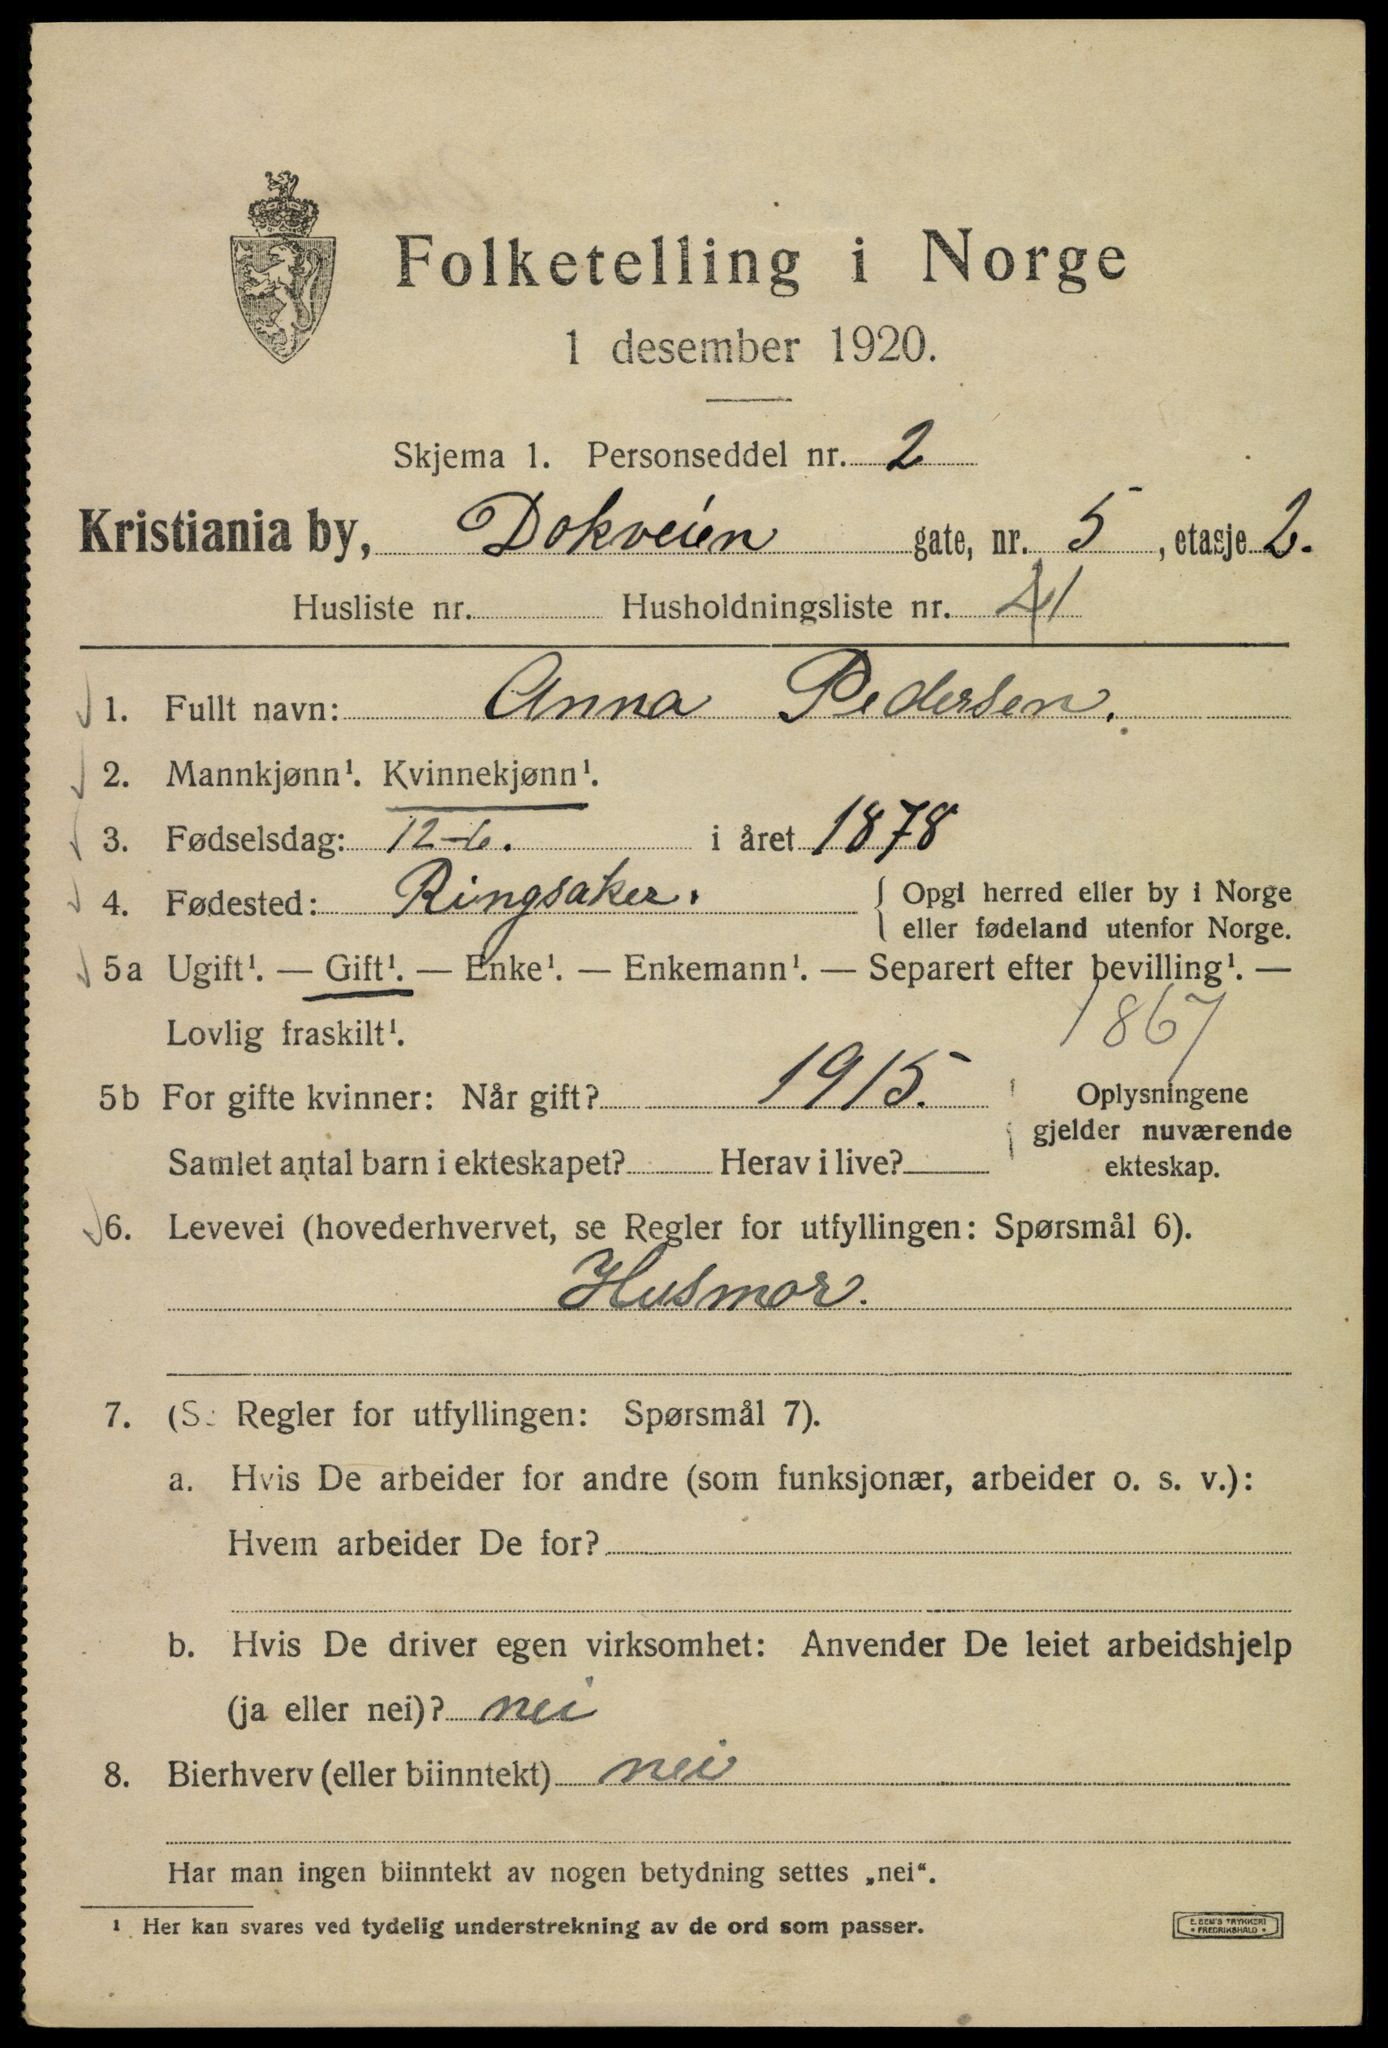 Folketelling i Norge
1 desember 1920.
Skjema 1. Personseddel nr. 2
Kristiania by, Dokveien gate, nr. 5, etasje 2.
Husliste nr. Husholdningsliste nr. 41
1. Fullt navn: Anna Pedersen.
2. Mannkjønn¹. Kvinnekjønn¹.
3. Fødselsdag: 12-6. i året 1878
4. Fødested: Ringsaker. Opgi herred eller by i Norge
eller fødeland utenfor Norge.
5a Ugift¹. — Gift¹. — Enke¹. — Enkemann¹. — Separert efter bevilling¹. —
Lovlig fraskilt¹. 1867
5b For gifte kvinner: Når gift? 1915. Oplysningene
gjelder nuværende
Samlet antal barn i ekteskapet? Herav i live? ekteskap.
6. Levevei (hovederhvervet, se Regler for utfyllingen: Spørsmål 6).
Husmor.
7. (S: Regler for utfyllingen: Spørsmål 7).
a. Hvis De arbeider for andre (som funksjonær, arbeider o. s. v.):
Hvem arbeider De for?
b. Hvis De driver egen virksomhet: Anvender De leiet arbeidshjelp
(ja eller nei)? nei
8. Bierhverv (eller biinntekt) nei
Har man ingen biinntekt av nogen betydning settes „nei“.
¹ Her kan svares ved tydelig understrekning av de ord som passer.
E. SEM'S TRYKKERI
• FREDRIKSHALD •